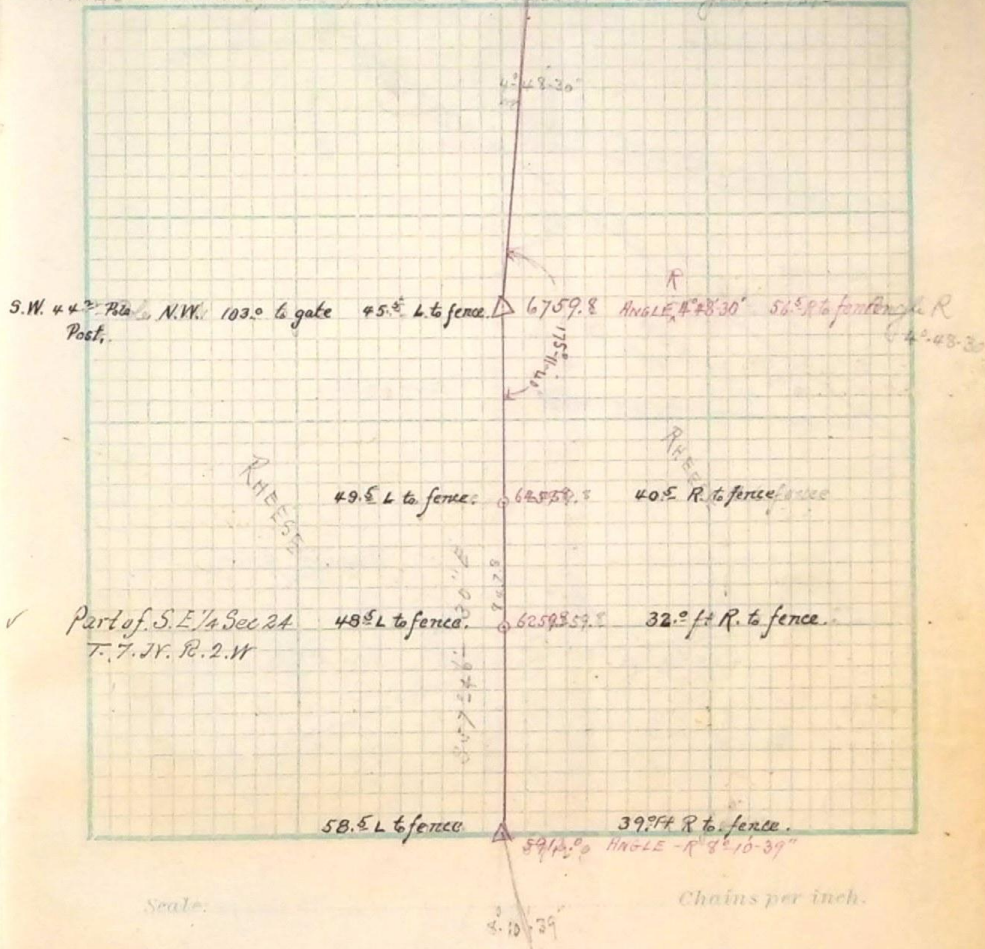 4°-48'-30"
R
S.W. 44 Post. N.W. 103.° to gate 45.5 L. to fence. 6759.8 ANGLE 4°48'-30" 56.5 R to fence Angle R
4°-48-30
175°-11'
RHEESE
RHEESE
49.5 L to fence. 40.5 R. to fence
Part of. S.E 1/4 Sec 24 48.5 L to fence. 6259.8 32.° ft R. to fence.
T. 7. N. R. 2. W
58.5 L to fence 39.° ft R to. fence.
ANGLE - R 8°-10-39"
Scale. Chains per inch.
8°-10'-39"